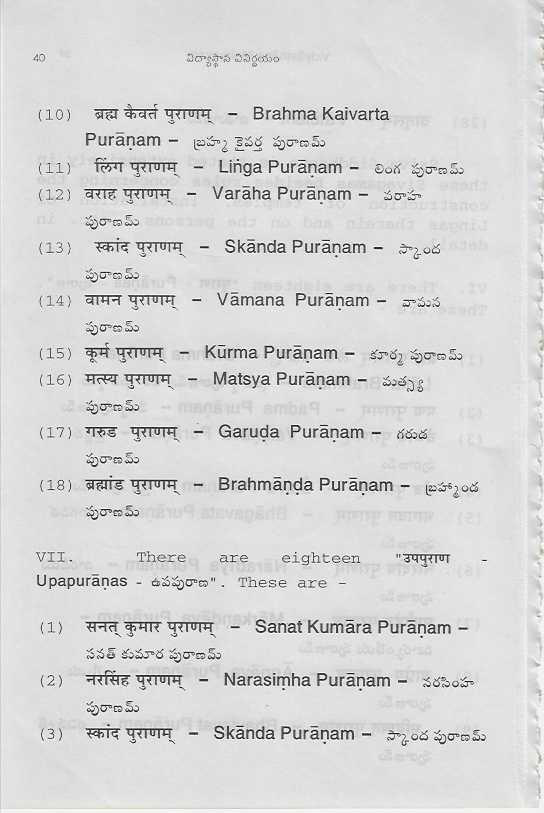 40 విద్యాస్థాన వినిర్ణయం
(10) ब्रह्म कैवर्त पुराणम् – Brahma Kaivarta
Purāṇam – బ్రహ్మ కైవర్త పురాణమ్
(11) लिंग पुराणम् – Liṅga Purāṇam – లింగ పురాణమ్
(12) वराह पुराणम् – Varāha Purāṇam – వరాహ
పురాణమ్
(13) स्कांद पुराणम् – Skānda Purāṇam – స్కాంద
పురాణమ్
(14) वामन पुराणम् – Vāmana Purāṇam – వామన
పురాణమ్
(15) कूर्म पुराणम् – Kūrma Purāṇam – కూర్మ పురాణమ్
(16) मत्स्य पुराणम् – Matsya Purāṇam – మత్స్య
పురాణమ్
(17) गरुड पुराणम् – Garuḍa Purāṇam – గరుడ
పురాణమ్
(18) ब्रह्मांड पुराणम् – Brahmāṇḍa Purāṇam – బ్రహ్మాండ
పురాణమ్
VII. There are eighteen "उपपुराण -
Upapurāṇas - ఉపపురాణ". These are –
(1) सनत् कुमार पुराणम् – Sanat Kumāra Purāṇam –
సనత్ కుమార పురాణమ్
(2) नरसिंह पुराणम् – Narasiṃha Purāṇam – నరసింహ
పురాణమ్
(3) स्कांद पुराणम् – Skānda Purāṇam – స్కాంద పురాణమ్